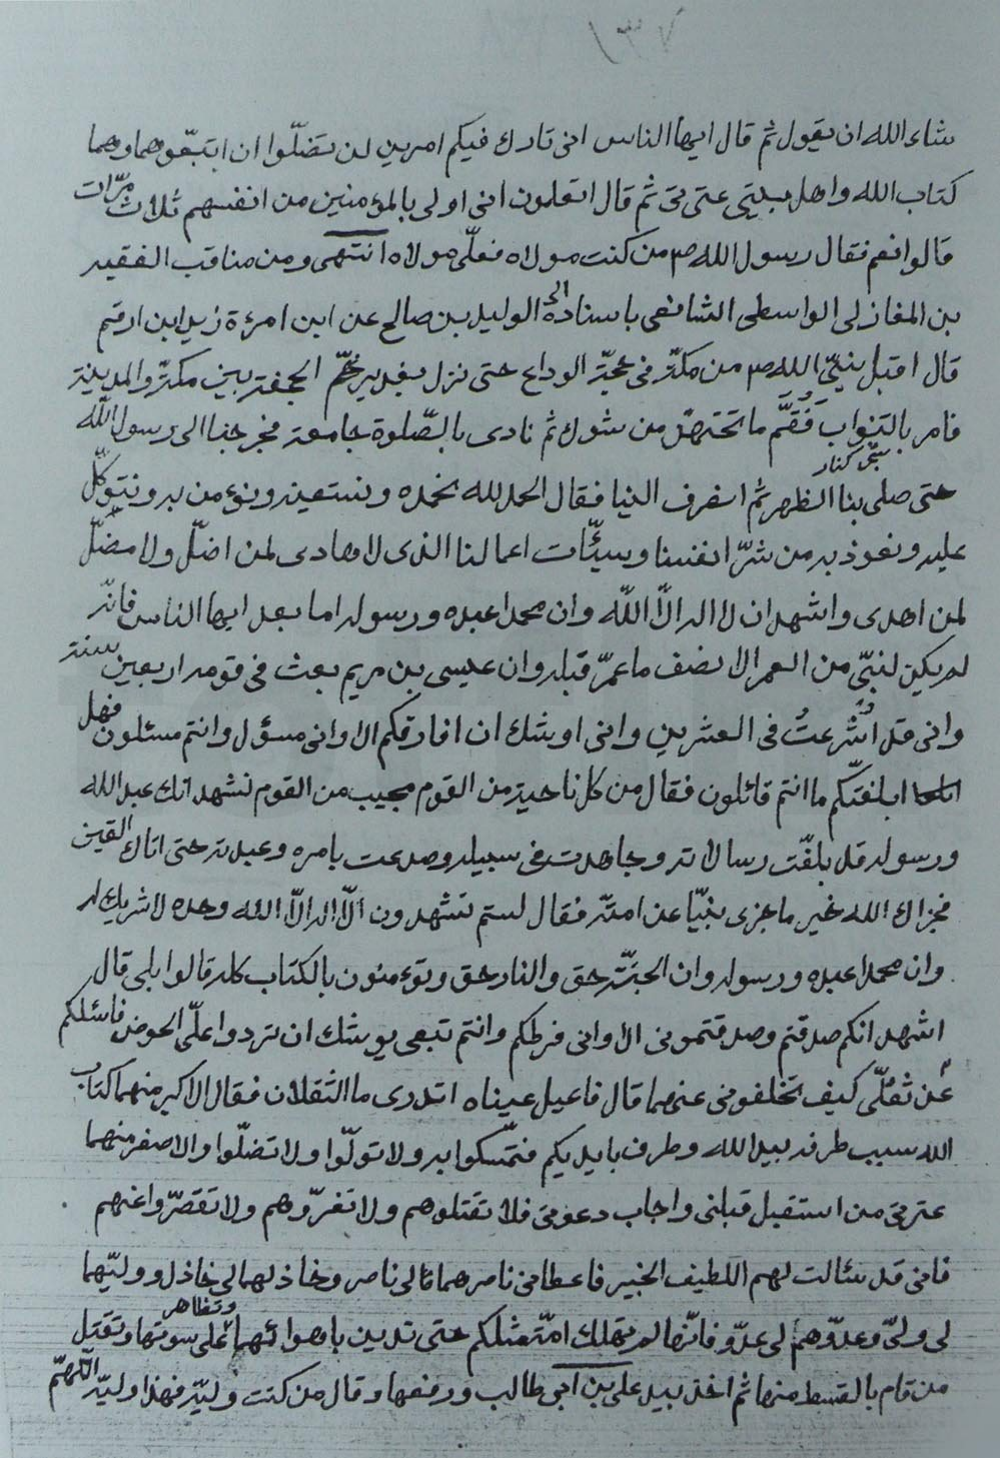 شاء الله ان يقول ثم قال ايها الناس انى تارك فيكم امرين لن تضلّوا ان اتبعتموهما وهما
كتاب الله واهل بيتى عترتى ثم قال اتعلمون انى اولى بالمؤمنين من انفسهم ثلاث مرّات
قالوا نعم فقال رسول الله ص من كنت مولاه فعلّى مولاه انتهى ومن مناقب الفقيه
بن المغازلى الواسطى الشافعى باسناده الى الوليد بن صالح عن ابن امرءة زيد ابن ارقم
قال اقبل نبىّ الله ص من مكة فى حجة الوداع حتى نزل بغدير خمّ الجحفة بين مكة والمدينة
فامر بالدوحات فقمّ ما تحتهنّ من شوك ثم نادى بالصّلوة جامعة فخرجنا الى رسول الله
حتى صلى بنا الظهر ثم انصرف الينا فقال الحمد لله نحمده ونستعينه ونؤمن به ونتوكّل
عليه ونعوذ به من شرّ انفسنا وسيّئات اعمالنا الذى لا هادى لمن اضلّ ولا مضلّ
لمن اهدى واشهد ان لا اله الّا اللّه وان محمدا عبده ورسوله اما بعد ايها الناس فانّه
لم يكن لنبىّ من العمر الا نصف ما عمّر قبله وان عيسى بن مريم بعث فى قومه اربعين سنة
وانى قد اشرعت فى العشرين وانى اوشك ان افارقكم الا وانى مسؤل وانتم مسئلون فهل
ابلغتكم ما انتم قائلون فقال من كل ناحية من القوم مجيب من القوم نشهد انك عبد الله
ورسوله قد بلغّت رسالاته وجاهدت فى سبيله وصدعت بامره وعبدته حتى اتاك اليقين
فجزاك الله خير ما جزى نبيّا عن امته فقال لستم تشهدون الّا اله الّا الله وحده لا شريك له
وان محمدا عبده ورسوله وان الجنّة حق والنار حق وتؤمنون بالكتاب كله قالوا بلى قال
اشهد انكم صدقتم وصدقتمونى الا وانى فرطكم وانتم تبعى يوشك ان تردوا علّى الحوض فاسئلكم
عن ثقلّى كيف تخلفونى عنهما قال فاعيل عيناه اتدرى ما الثقلان فقال الاكبر منهما كتاب
الله سبب طرفه بيد الله وطرف بايديكم فتمّسكوا به ولا تولّوا ولا تضلّوا والاصغر منهما
عترتى من استقبل قبلتى واجاب دعوتى فلا تقتلوهم ولا تغرّوهم ولا تقصرّوا عنهم
فانى قد سئالت لهم اللطيف الخبير فاعطانى ناصرهما لى ناصر وخاذلهما لى خاذل ووليّهما
لى ولىّ وعدوّهما لى عدوّ فانّها لم تهلك امّة قبلكم حتى تدين باهوائها وتظاهر على سوءتها وتقتل
من قام بالقسط منها ثم اخذ بيد على بن ابى طالب ورفعها وقال من كنت وليّه فهذا وليّه اللّهمّ